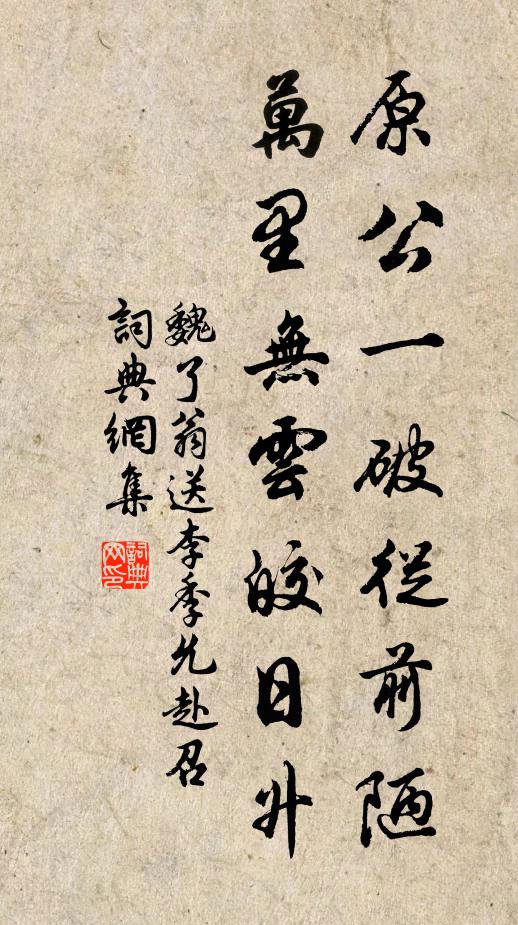 原公一破從前陋
萬里無雲皎日升
魏了翁送李季允赴召
詞典網集
詞典
网印